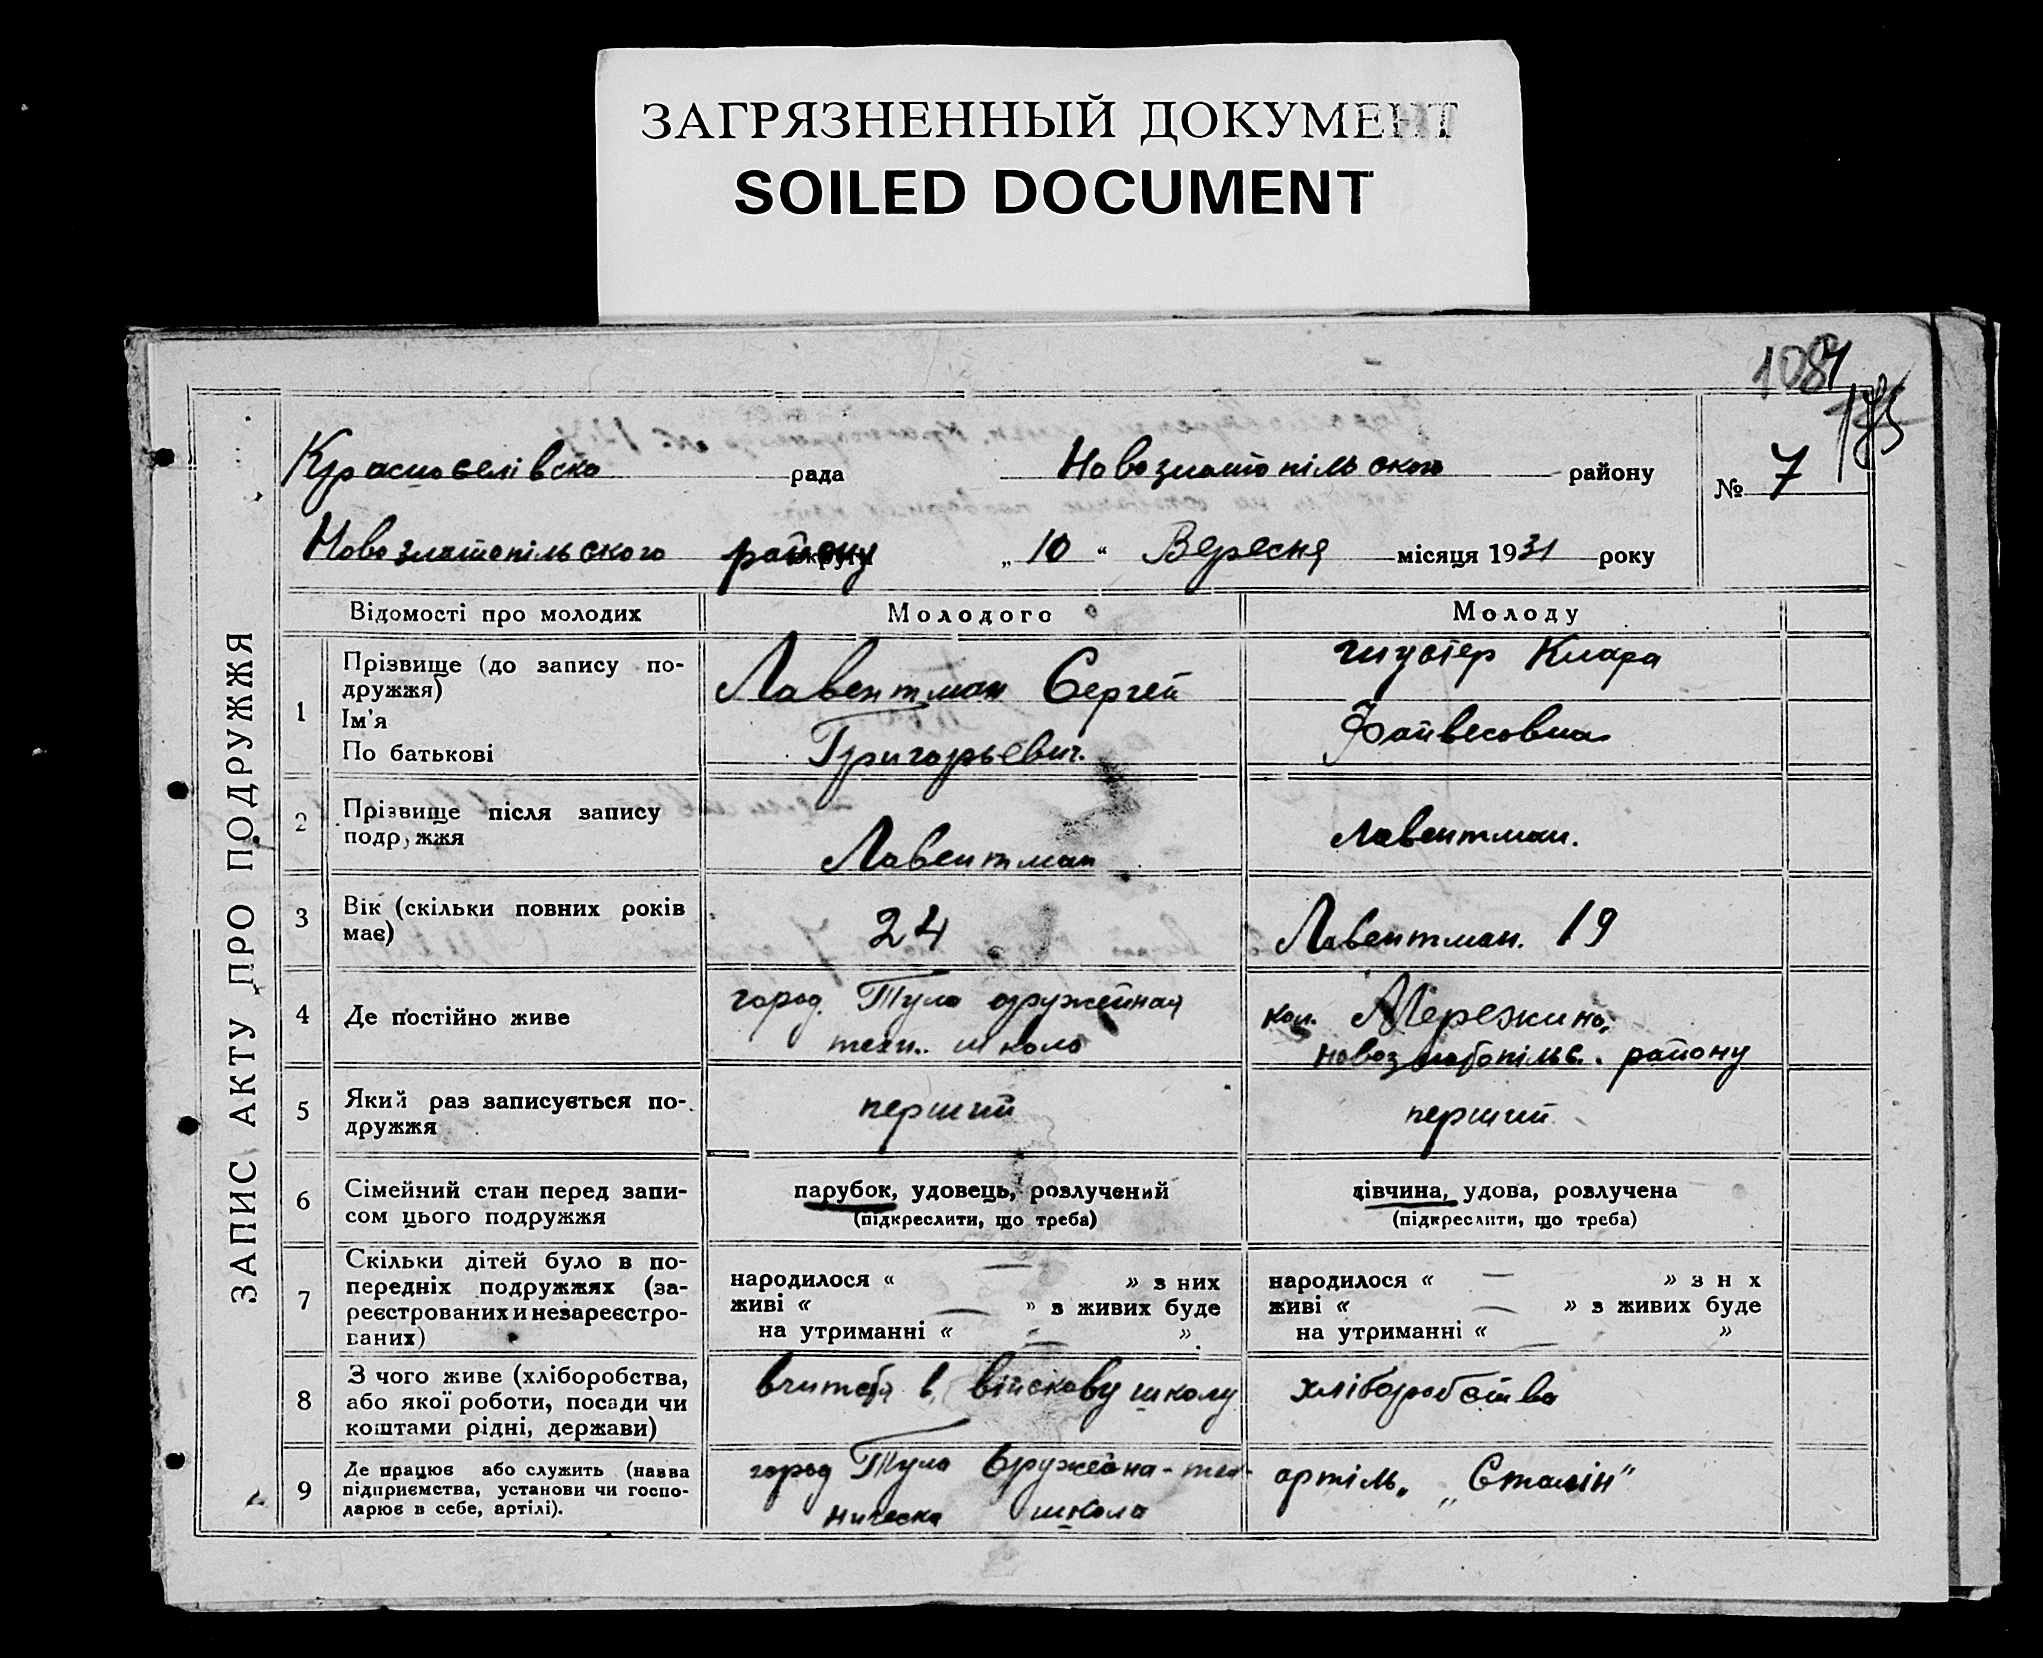 ЗАГРЯЗНЕННЫЙ ДОКУМЕНТ
SOILED DOCUMENT
7
Красноселівска рада Новозлатопільского району № 7
Новозлатопільского району „ 10 “ Вересня місяця 1931 року
ЗАПИС АКТУ ПРО ПОДРУЖЖЯ
Відомості про молодих Молодого Молоду
1 Прізвище (до запису по-
дружжя)
Ім'я
По батькові
Лавентман Сергей
Григорьевич.
Шустер Клара
Файвесовна
2 Прізвище після запису
подружжя
Лавентман
Лавентман.
3 Вік (скільки повних років
має)
24
Лавентман. 19
4 Де постійно живе
город. Тула оружейная
техн. школа
кол. Мережино,
новозлатопільс. району
5 Який раз записується по-
дружжя
перший
перший
6 Сімейний стан перед запи-
сом цього подружжя
парубок, удовець, розлучений
(підкреслити, що треба)
дівчина, удова, розлучена
(підкреслити, що треба)
7 Скільки дітей було в по-
передніх подружжях (за-
реєстрованих и незареєстро-
ваних)
народилося « — » з них
живі « — » з живих буде
на утриманні « — »
народилося « — » з н х
живі « — » з живих буде
на утриманні « — »
8 З чого живе (хліборобства,
або якої роботи, посади чи
коштами рідні, держави)
в військову школу
хліборобство
9 Де працює або служить (назва
підприємства, установи чи госпо-
дарює в себе, артілі).
город Тула Оружейна-тех-
ническа школа
артіль „ „Сталін“